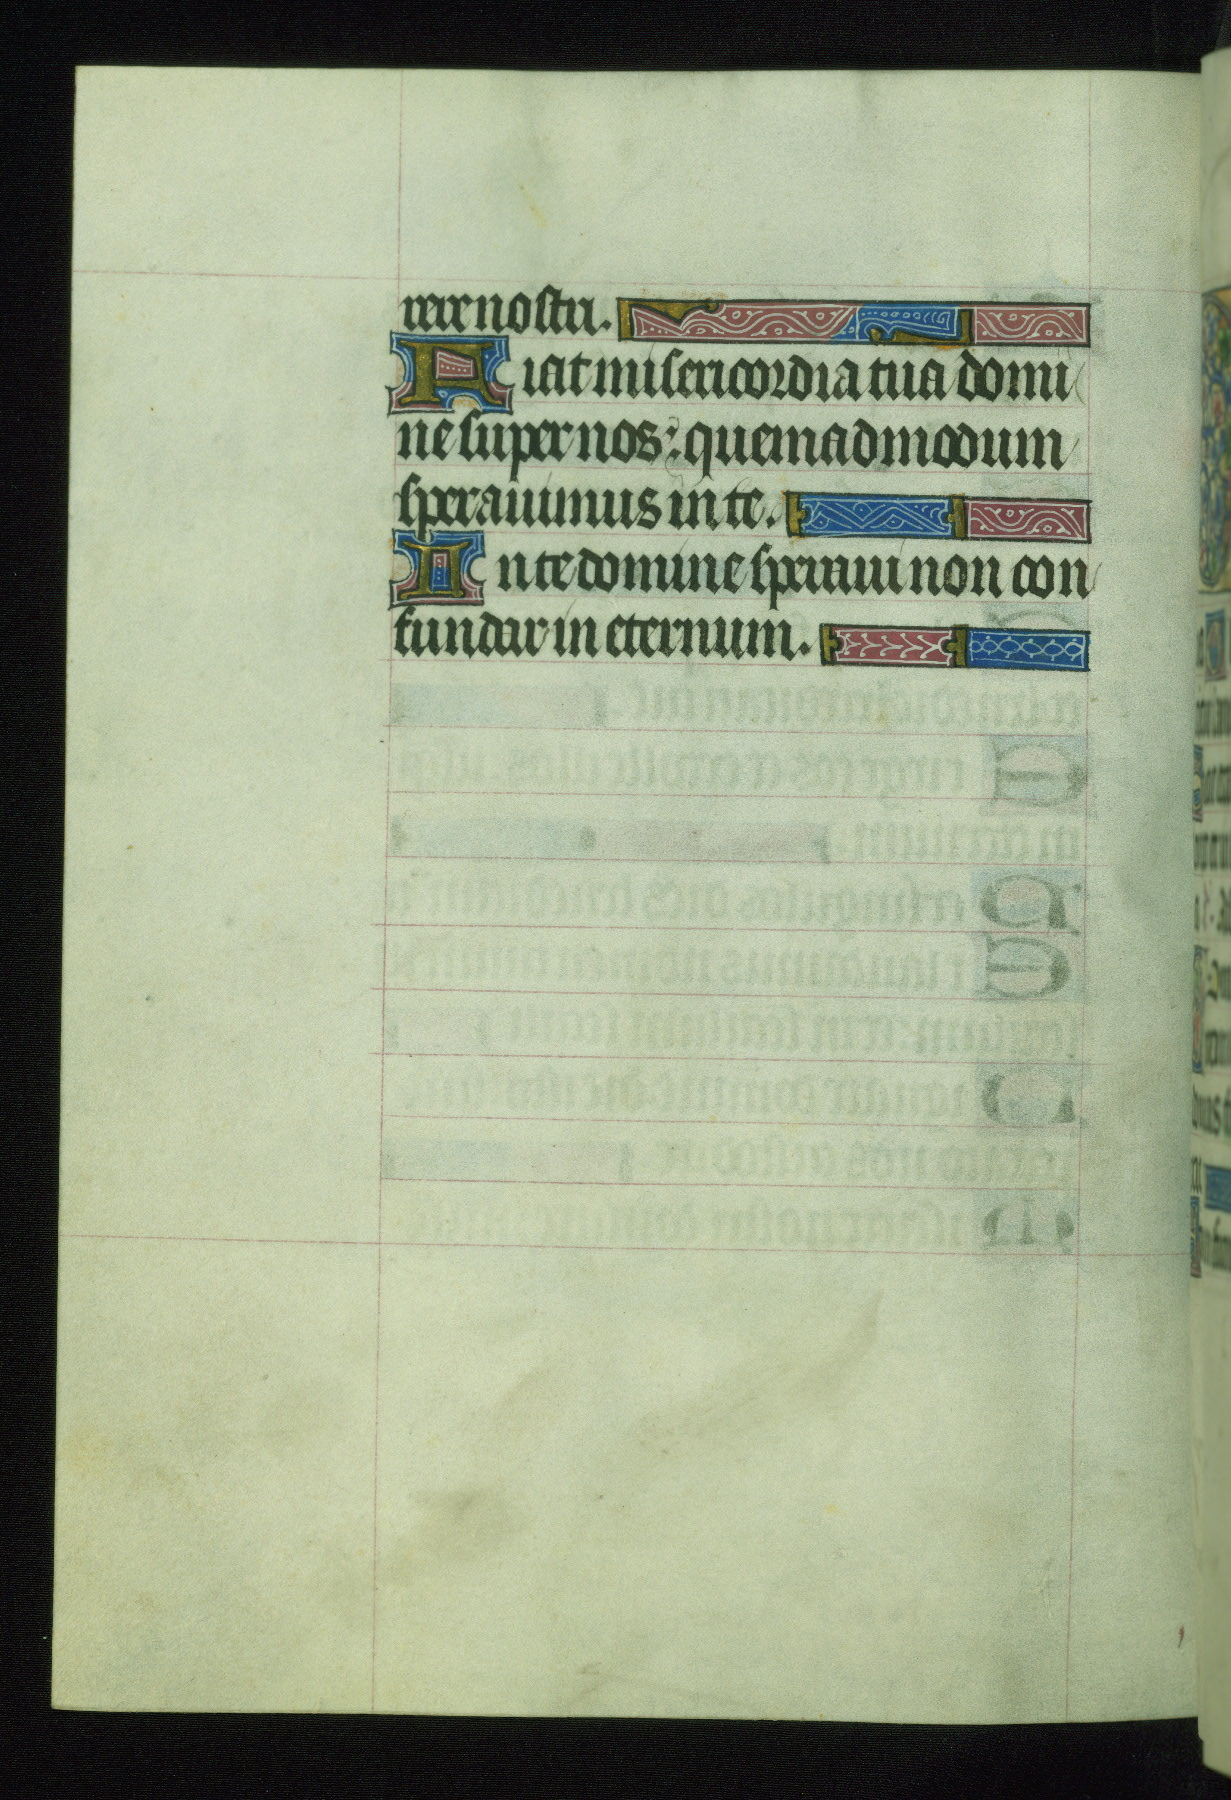 rere nostri.
Fiat misericordia tua domi
ne super nos: quemadmodum
sperauimus in te.
In te domine speraui non con
fundar in eternum.